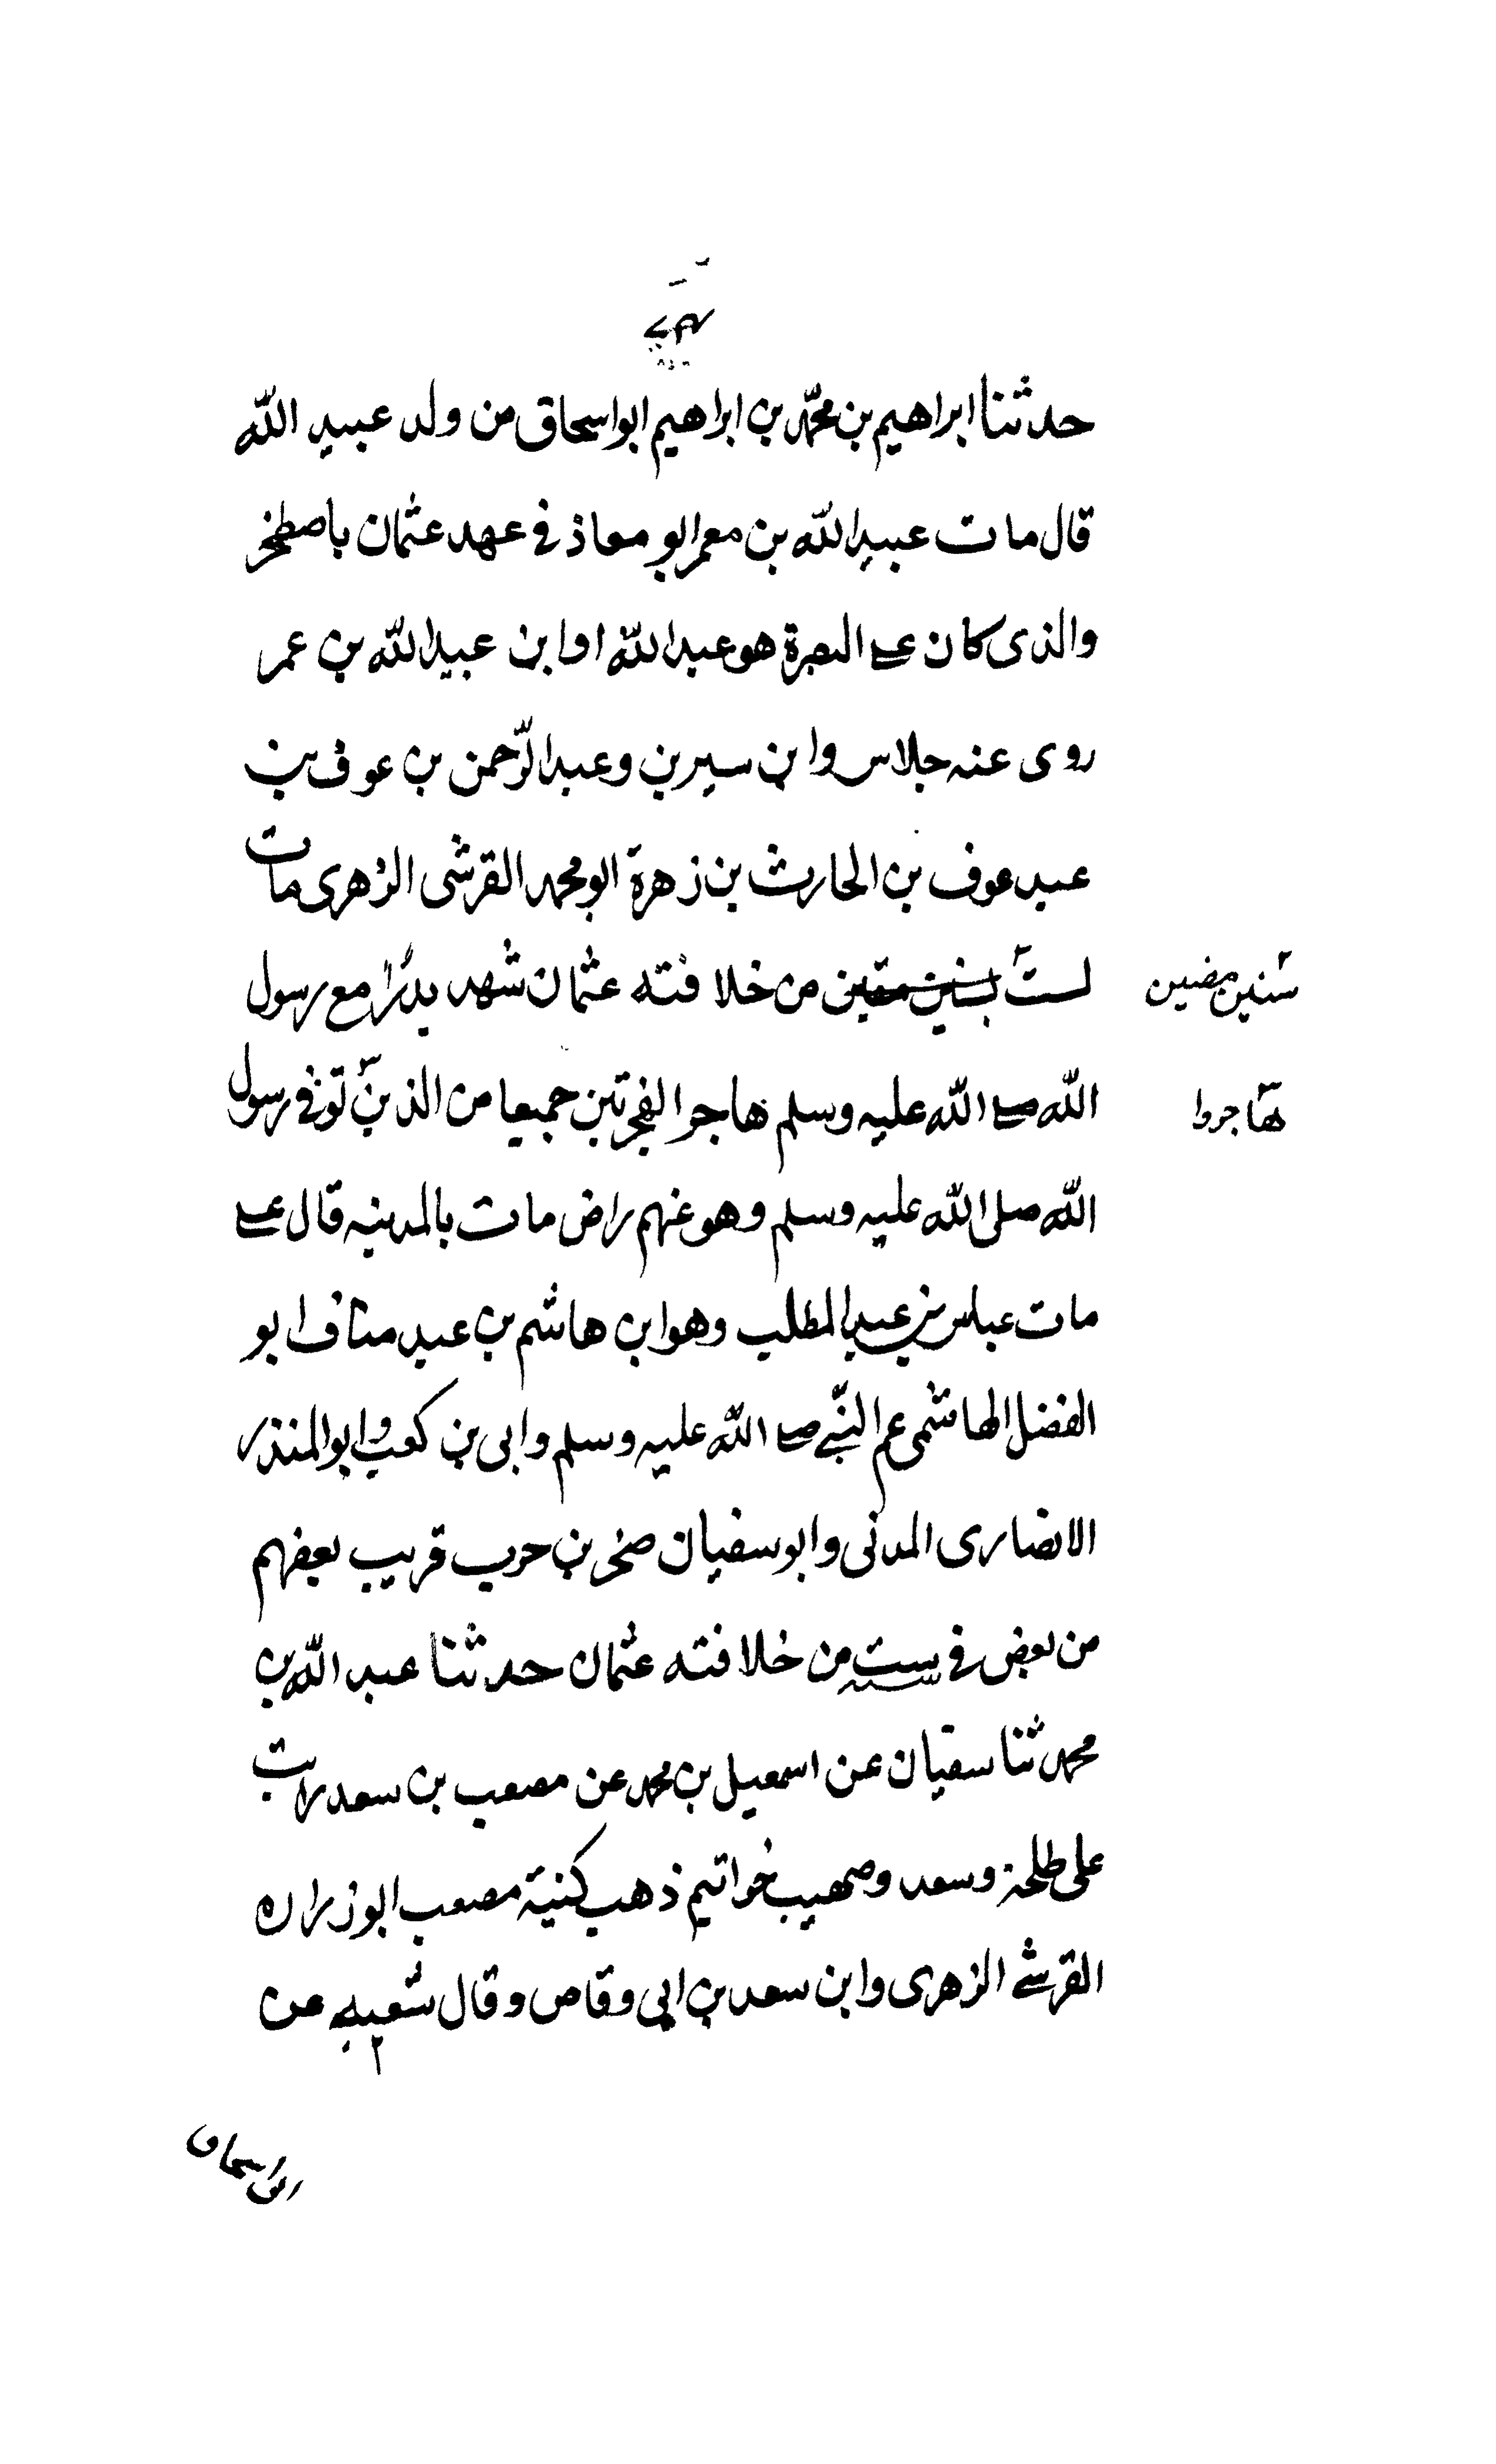 حدثنا ابراهيم بن محمّد بن ابراهيم ابو اسحاق من ولد عبيد اللّه
قال مات عبيد اللّه بن معمر ابو معاذ في عهد عثمان باصطخر
والذى كان على البصرة هو عبد اللّه او ابن عبيد اللّه بن عمر
روى عنه جلاس وابن سيرين وعبد الرّحمن بن عوف بن
عبد عوف بن الحارث بن زهرة ابو محمد القرشى الزهرى مات
لست بسنين بقين من خلافته عثمان شهد بدرًا مع رسول
سنين مضين
اللّه صلى اللّه عليه وسلم هاجر الهجرتين جميعا من الذين توفى رسول
هاجروا
اللّه صلى اللّه عليه وسلم وهو عنهم راض مات بالمدينه قال على
مات عباس بن عبد المطلب وهو ابن هاشم بن عبد مناف ابو
الفضل الهاشمى عم النّبي صلى اللّه عليه وسلم وابى بن كعب وابو المنذر
الانصارى المدنى وابو سفيان صخر بن حرب قريب بعضهم
من بعض في ست من خلافته عثمان حدثنا عبد اللّه بن
محمد ثنا سفيان عن اسمعيل بن محمد عن مصعب بن سعد رايت
على طلحة وسعد وصهيب خواتيم ذهب كنية مصعب ابو زراره
القرشي الزهرى وابن سعد بن ابى وقاص وقال شعبه عن
ابى اسحاق